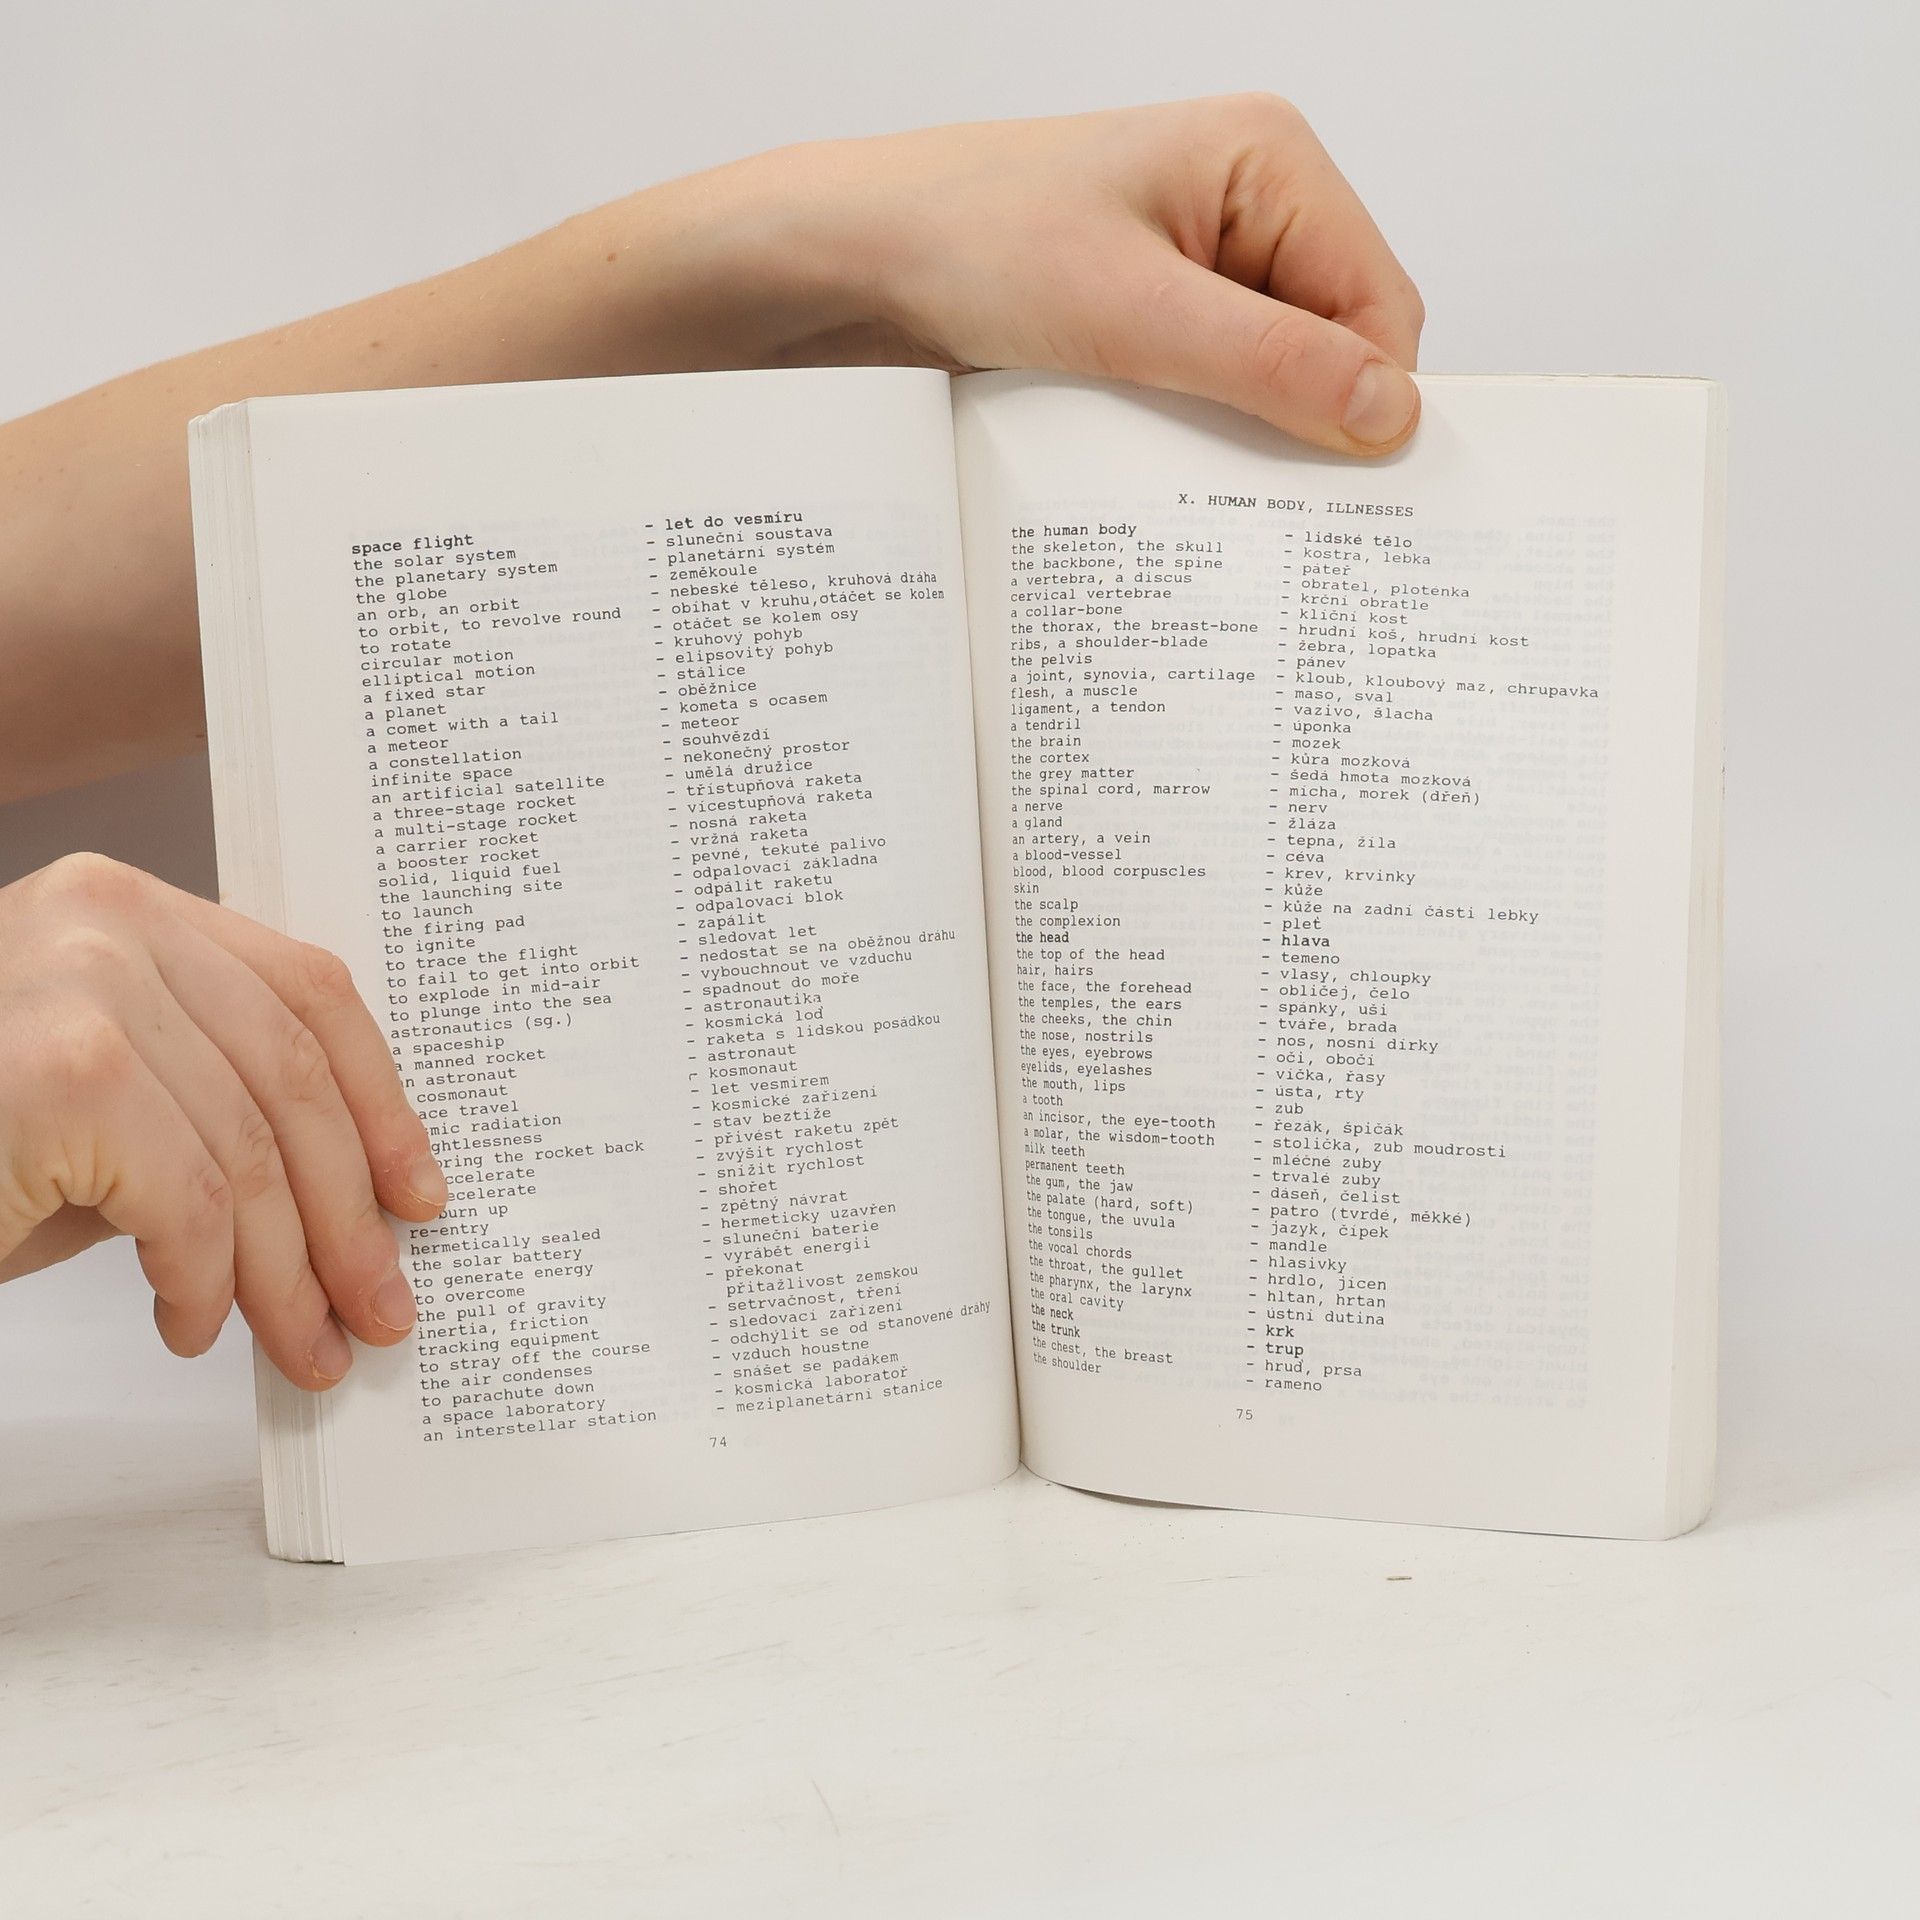 space flight - let do vesmíru
the solar system - sluneční soustava
the planetary system - planetární systém
the globe - zeměkoule
an orb, an orbit - nebeské těleso, kruhová dráha
to orbit, to revolve round - obíhat v kruhu,otáčet se kolem
to rotate - otáčet se kolem osy
circular motion - kruhový pohyb
elliptical motion - elipsovitý pohyb
a fixed star - stálice
a planet - oběžnice
a comet with a tail - kometa s ocasem
a meteor - meteor
a constellation - souhvězdí
infinite space - nekonečný prostor
an artificial satellite - umělá družice
a three-stage rocket - třístupňová raketa
a multi-stage rocket - vícestupňová raketa
a carrier rocket - nosná raketa
a booster rocket - vržná raketa
solid, liquid fuel - pevné, tekuté palivo
the launching site - odpalovací základna
to launch - odpálit raketu
the firing pad - odpalovací blok
to ignite - zapálit
to trace the flight - sledovat let
to fail to get into orbit - nedostat se na oběžnou dráhu
to explode in mid-air - vybouchnout ve vzduchu
to plunge into the sea - spadnout do moře
astronautics (sg.) - astronautika
a spaceship - kosmická loď
a manned rocket - raketa s lidskou posádkou
n astronaut - astronaut
cosmonaut - kosmonaut
ace travel - let vesmírem
smic radiation - kosmické zařízení
ghtlessness - stav beztíže
bring the rocket back - přivést raketu zpět
ccelerate - zvýšit rychlost
ecelerate - snížit rychlost
burn up - shořet
re-entry - zpětný návrat
hermetically sealed - hermeticky uzavřen
the solar battery - sluneční baterie
to generate energy - vyrábět energii
to overcome - překonat
the pull of gravity přitažlivost zemskou
inertia, friction - setrvačnost, tření
tracking equipment - sledovací zařízení
to stray off the course - odchýlit se od stanovené dráhy
the air condenses - vzduch houstne
to parachute down - snášet se padákem
a space laboratory - kosmická laboratoř
an interstellar station - meziplanetární stanice
74
X. HUMAN BODY, ILLNESSES
the human body - lidské tělo
the skeleton, the skull - kostra, lebka
the backbone, the spine - páteř
a vertebra, a discus - obratel, ploténka
cervical vertebrae - krční obratle
a collar-bone - klíční kost
the thorax, the breast-bone - hrudní koš, hrudní kost
ribs, a shoulder-blade - žebra, lopatka
the pelvis - pánev
a joint, synovia, cartilage - kloub, kloubový maz, chrupavka
flesh, a muscle - maso, sval
ligament, a tendon - vazivo, šlacha
a tendril - úponka
the brain - mozek
the cortex - kůra mozková
the grey matter - šedá hmota mozková
the spinal cord, marrow - mícha, morek (dřeň)
a nerve - nerv
a gland - žláza
an artery, a vein - tepna, žíla
a blood-vessel - céva
blood, blood corpuscles - krev, krvinky
skin - kůže
the scalp - kůže na zadní části lebky
the complexion - pleť
the head - hlava
the top of the head - temeno
hair, hairs - vlasy, chloupky
the face, the forehead - obličej, čelo
the temples, the ears - spánky, uši
the cheeks, the chin - tváře, brada
the nose, nostrils - nos, nosní dírky
the eyes, eyebrows - oči, obočí
eyelids, eyelashes - víčka, řasy
the mouth, lips - ústa, rty
a tooth - zub
an incisor, the eye-tooth - řezák, špičák
a molar, the wisdom-tooth - stolička, zub moudrosti
milk teeth - mléčné zuby
permanent teeth - trvalé zuby
the gum, the jaw - dáseň, čelist
the palate (hard, soft) - patro (tvrdé, měkké)
the tongue, the uvula - jazyk, čípek
the tonsils - mandle
the vocal chords - hlasivky
the throat, the gullet - hrdlo, jícen
the pharynx, the larynx - hltan, hrtan
the oral cavity - ústní dutina
the neck - krk
the trunk - trup
the chest, the breast - hruď, prsa
the shoulder - rameno
75